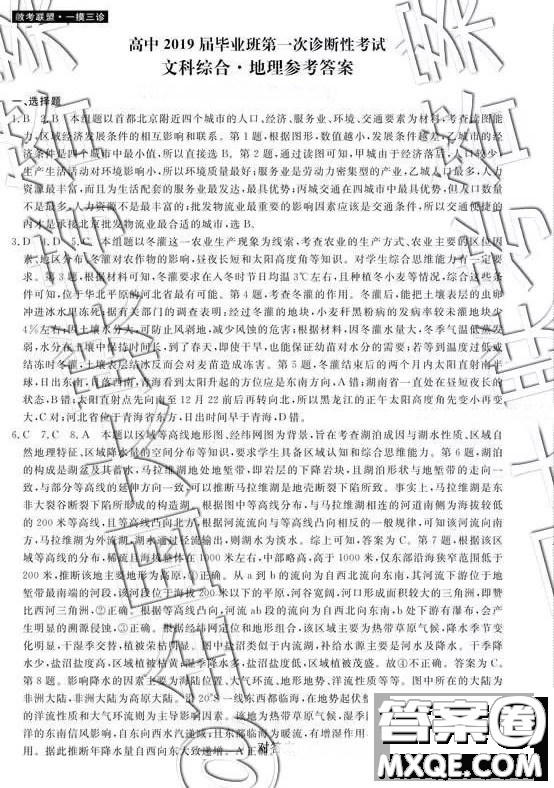 教考联盟·一摸三诊
高中 2019 届毕业班第一次诊断性考试
文科综合·地理参考答案
一、选择题
1.B 2.B 本组题以首都北京附近四个城市的人口、经济、服务业、环境、交通要素为材料,考查读图能
力,区域经济发展条件的相互影响和联系。第1题,根据图形,数值越小,发展条件越差,乙城市的经
济条件是四个城市中最小值,所以直接选B。第2题,通过读图可知,甲城由于经济落后,人口较少,
生产生活活动对环境影响小,所以环境质量最好;服务业是劳动力密集型的产业,乙城人口最多,人力
资源最丰富,而且为生活配套的服务业最发达,最具优势;丙城交通在四城市中最具优势,但人口数量
不是最多,人力资源不是最丰富的;批发物流业最重要的影响因素应该是交通活动,所以交通便捷的
丙才是承接北京批发物流业最合适的城市,选B。
3.D 4.D 5.C 本组题以冬灌这一农业生产现象为线索,考查农业的生产方式、农业主要的区位因
素、地区分布、冬灌对农作物的影响、昼夜长短和太阳高度角等知识。对学生综合思维能力有一定要
求。第3题,根据材料可知,冬灌要求在入冬时节日均温3℃左右,且种植冬小麦等情况,综合这些条
件可知,位于华北平原的河北省最有可能。第4题,考查冬灌的影响。冬灌后,能把土壤表层的虫卵
冲进冰水里冻死;据有关部门的调查表明:经过冬灌的地块,小麦秆黑粉病的发病率较未灌地块少
4%左右;因土壤水分大,可防止风剥地,减少风蚀的危害;不仅如此,因冬灌水量大,冬季气温低蒸发
弱,水分在土壤中保持时间长,到了春天,即使干旱,也能保证幼苗对水分的需要;若等到温度过低或
结冻时冬灌,土壤表层结冰反而会对麦苗造成冻害。第5题,冬灌结束后的两个月内太阳直射南半
球,日出东南,日落西南,青海看到太阳升起的方位应是东南方向,A错;湖南省一直处在昼短夜长的
状态,B错;太阳直射点先向南至12月22前后再转向北,所以黑龙江的正午太阳高度角先变小再变
大,C对;河北省位于青海省东方,日出时间早于青海,D错。
6.C 7.C 8.A 本题以区域等高线地形图、经纬网图为背景,旨在考查湖泊成因与湖水性质、区域自
然地理特征、区域降水量的空间分布等知识,要求学生具备区域认知和综合思维能力。第6题,湖泊
的构成是湖盆及其蓄水,马拉维湖地处地堑带,即岩层的下降岩块,且湖泊形状与地堑带的走向一
致,与部分等高线的延伸方向一致,可以推断马拉维湖是地壳断裂下陷所致。事实上,马拉维湖是东
非大裂谷断裂下陷所形成的构造湖。根据图中等高线分布,与马拉维湖相连的河道南侧为海拔较低
的200米等高线,且等高线凸向北方,根据河流流向与等高线凸向相反的一般规律,可知该河流向南
方,马拉维湖为外流湖,湖水通过径流输出,则湖水为淡水。综上可知,答案为C。第7题,根据该区
域等高线的分布,稀疏且海拔整体在1000米左右,中部略高,高于1000米,仅东部沿海狭窄范围低于
200米,推断该地主要地形为高原,①正确。从a到b的流向为自西北流向东南,其河流下游位于地
堑带最南端的河段,该河段位于海拔200米以下的平原,河谷宽阔,河口形成面积较大的三角洲,即赞
比西河三角洲,②正确。根据等高线凸向,河流ab段的流向为自西北向东南,b处下游有瀑布,会产
生明显的溯源侵蚀,③正确。根据经纬网定位和地形组合,该区域主要为热带草原气候,降水季节变
化明显,干湿季交替,植被荣枯明显。图中盐沼类似于内流湖,补给水源主要是河水及降水。干季降
水少,盐沼盐度高,区域植被枯黄;湿季降水多,盐沼盐度低,区域植被茂盛。故④不正确。答案为C。
第8题。影响降水的因素主要为海陆位置、大气环流、地形地势、洋流性质等等。图中所在的大陆为
非洲大陆,非洲大陆为高原。沿20°S一线东西都临海,在地势起伏
的洋流性质和大气环流则为主导影响因素。该地为热带草原气候,湿季
洋的东南信风影响,自东向西水汽递减;且东部临海为暖流,有增湿作用
用。据此推断年降水量自西向东大致递增。A正确
对
答案圈
MXQE.COM